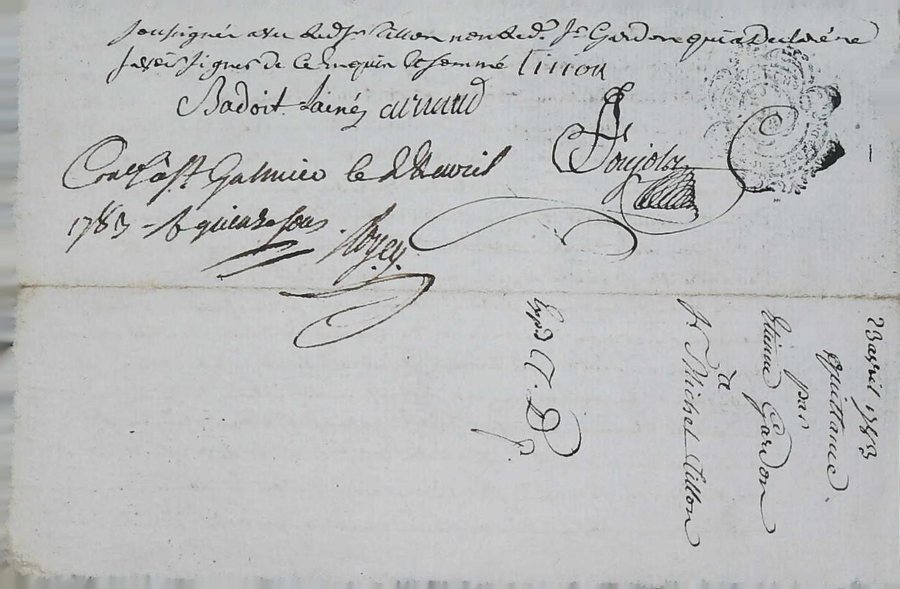 soussigné avec led. Sr. Tillon non led. Sr. Gardon qui a declaré ne
savoir signer de ce enquis et sommé Tillon
Badoit. Lainé, arnaud
Poujolas
Con.lé à St. Galmier le avril
1783 - sous. Royey
23 avril 1783
quittance.
par
Etienne Gardon
à
Sr. Michel Tillon
Expd. T. D.